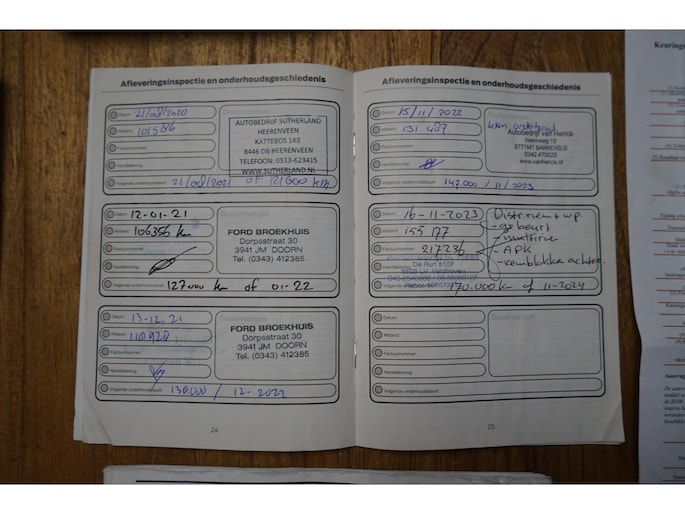 Afleveringsinspectie en onderhoudsgeschiedenis
Datum 21/08/2020
Afstand
Factuurnummer
Handtekening
Volgende onderhoudsbeurt 21/08/2021 of
Dealerstempel
AUTOBEDRIJF SUTHERLAND
HEERENVEEN
KATTEBOS 143
8446 DB HEERENVEEN
TELEFOON: 0513-623415
WWW.SUTHERLAND.NL
Datum 12-01-21
Afstand 106356 km
Factuurnummer
Handtekening
Volgende onderhoudsbeurt 127000 km of 01-22
Dealerstempel
FORD BROEKHUIS
Dorpsstraat 30
3941 JM DOORN
Tel. (0343) 412385
Datum 13-12-21
Afstand 110928
Factuurnummer
Handtekening
Volgende onderhoudsbeurt 130.000 / 12-2022
Dealerstempel
FORD BROEKHUIS
Dorpsstraat 30
3941 JM DOORN
Tel. (0343) 412385
24
Afleveringsinspectie en onderhoudsgeschiedenis
Datum 15/11/2022
Afstand 131 487
Factuurnummer
Handtekening
Volgende onderhoudsbeurt 147.000 / 11/2023
Autobedrijf van Herick
Veemweg 10
3771MT BARNEVELD
0342 470023
www.vanherick.nl
Datum 16-11-2023
Afstand 155 177
Factuurnummer 217236
Handtekening
Volgende onderhoudsbeurt 170.000 km of 11-2024
Distr. riem + wp.
- gr beurt
- multiriem
- APK
- remblokken achter
De Run 5107
5503 LV Veldhoven
Datum
Afstand
Factuurnummer
Handtekening
Volgende onderhoudsbeurt
Dealerstempel
25